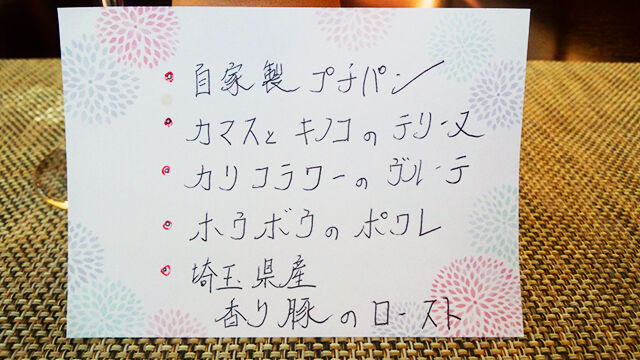 自家製 プチパン
カマスと キノコの テリーヌ
カリフラワーの ヴルーテ
ホウボウの ポワレ
埼玉県産
香り豚のロースト